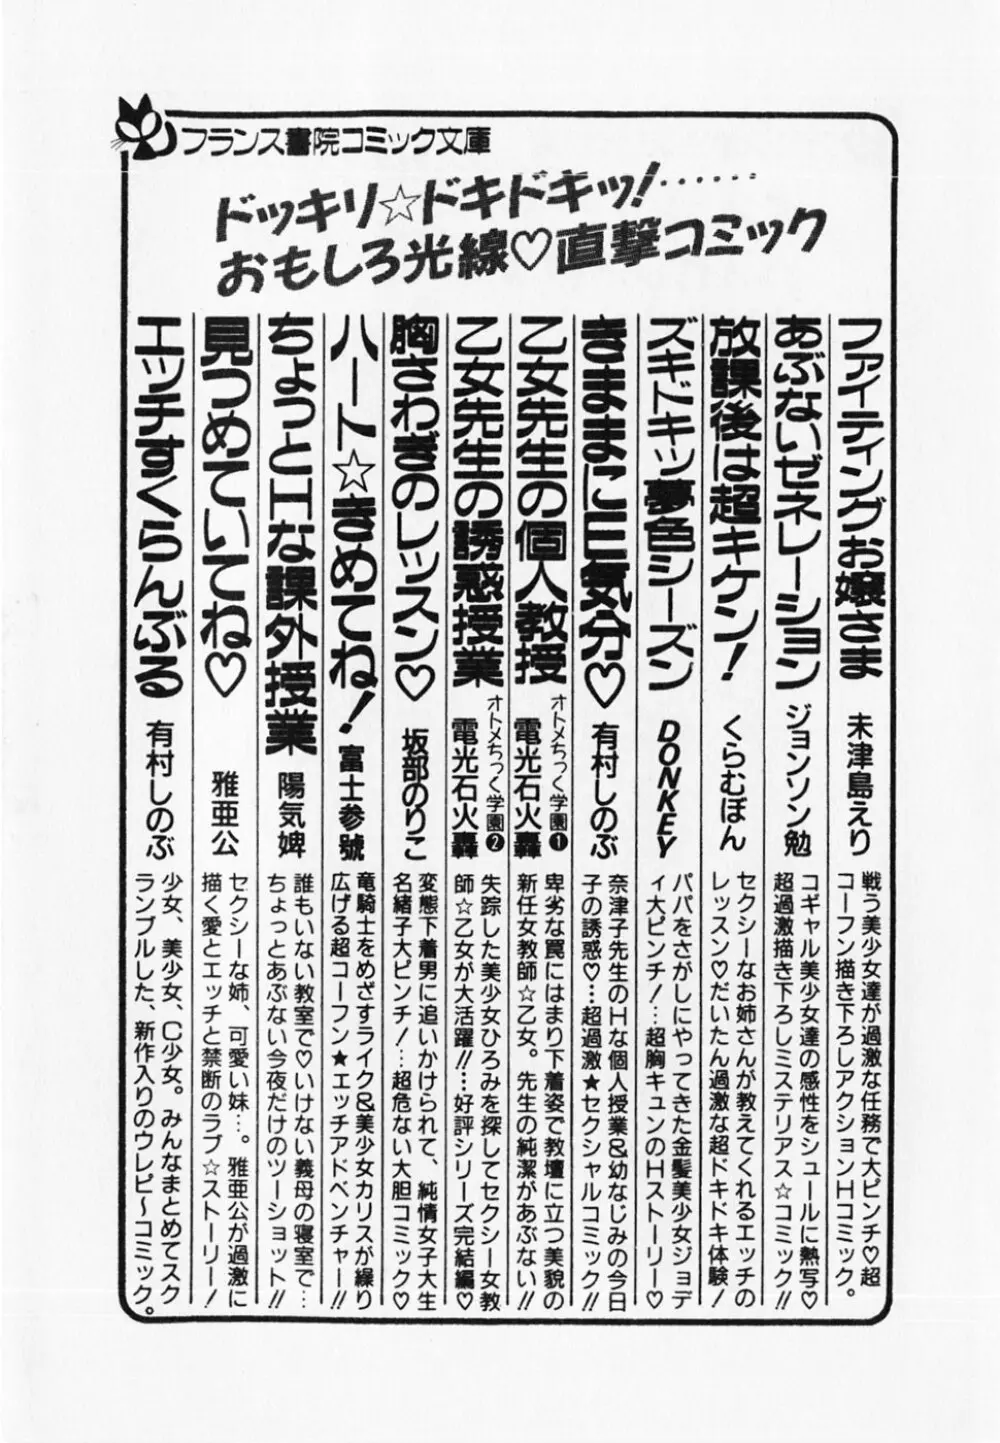 フランス書院コミック文庫
ドッキリ☆ドキドキッ!……
おもしろ光線♡直撃コミック
ファイティングお嬢さま 未津島えり
戦う美少女達が過激な任務で大ピンチ♡超
コーフン描き下ろしアクションHコミック。
あぶないゼネレーション ジョンソン勉
コギャル美少女達の感性をシュールに熱写♡
超過激描き下ろしミステリアス☆コミック!!
放課後は超キケン! くらむぼん
セクシーなお姉さんが教えてくれるエッチの
レッスン♡だいたん過激な超ドキドキ体験!
ズキドキッ夢色シーズン DONKEY
パパをさがしにやってきた金髪美少女ジョデ
ィ大ピンチ!…超胸キュンのHストーリー♡
きままにE気分♡ 有村しのぶ
奈津子先生のHな個人授業&幼なじみの今日
子の誘惑♡…超過激★セクシャルコミック!!
乙女先生の個人教授 オトメちっく学園❶ 電光石火轟
卑劣な罠にはまり下着姿で教壇に立つ美貌の
新任女教師☆乙女。先生の純潔があぶない!!
乙女先生の誘惑授業 オトメちっく学園❷ 電光石火轟
失踪した美少女ひろみを探してセクシー女教
師☆乙女が大活躍!!…好評シリーズ完結編♡
胸さわぎのレッスン♡ 坂部のりこ
変態下着男に追いかけられて、純情女子大生
名緒子大ピンチ!…超危ない大胆コミック♡
ハート☆きめてね! 富士参號
竜騎士をめざすライク&美少女カリスが繰り
広げる超コーフン★エッチアドベンチャー!!
ちょっとHな課外授業 陽気婢
誰もいない教室で♡いけない義母の寝室で…
ちょっとあぶない今夜だけのツーショット!!
見つめていてね♡ 雅亜公
セクシーな姉、可愛い妹…。雅亜公が過激に
描く愛とエッチと禁断のラブ☆ストーリー!
エッチすくらんぶる 有村しのぶ
少女、美少女、C少女。みんなまとめてスク
ランブルした、新作入りのウレピ〜コミック。